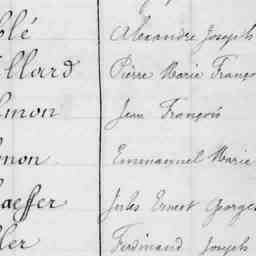 blé Alexandre Joseph
llard Pierre Marie Franço
lmon Jean François
mon Emmanuel Marie
haeffer Jules Ernest Georges
ler Ferdinand Joseph